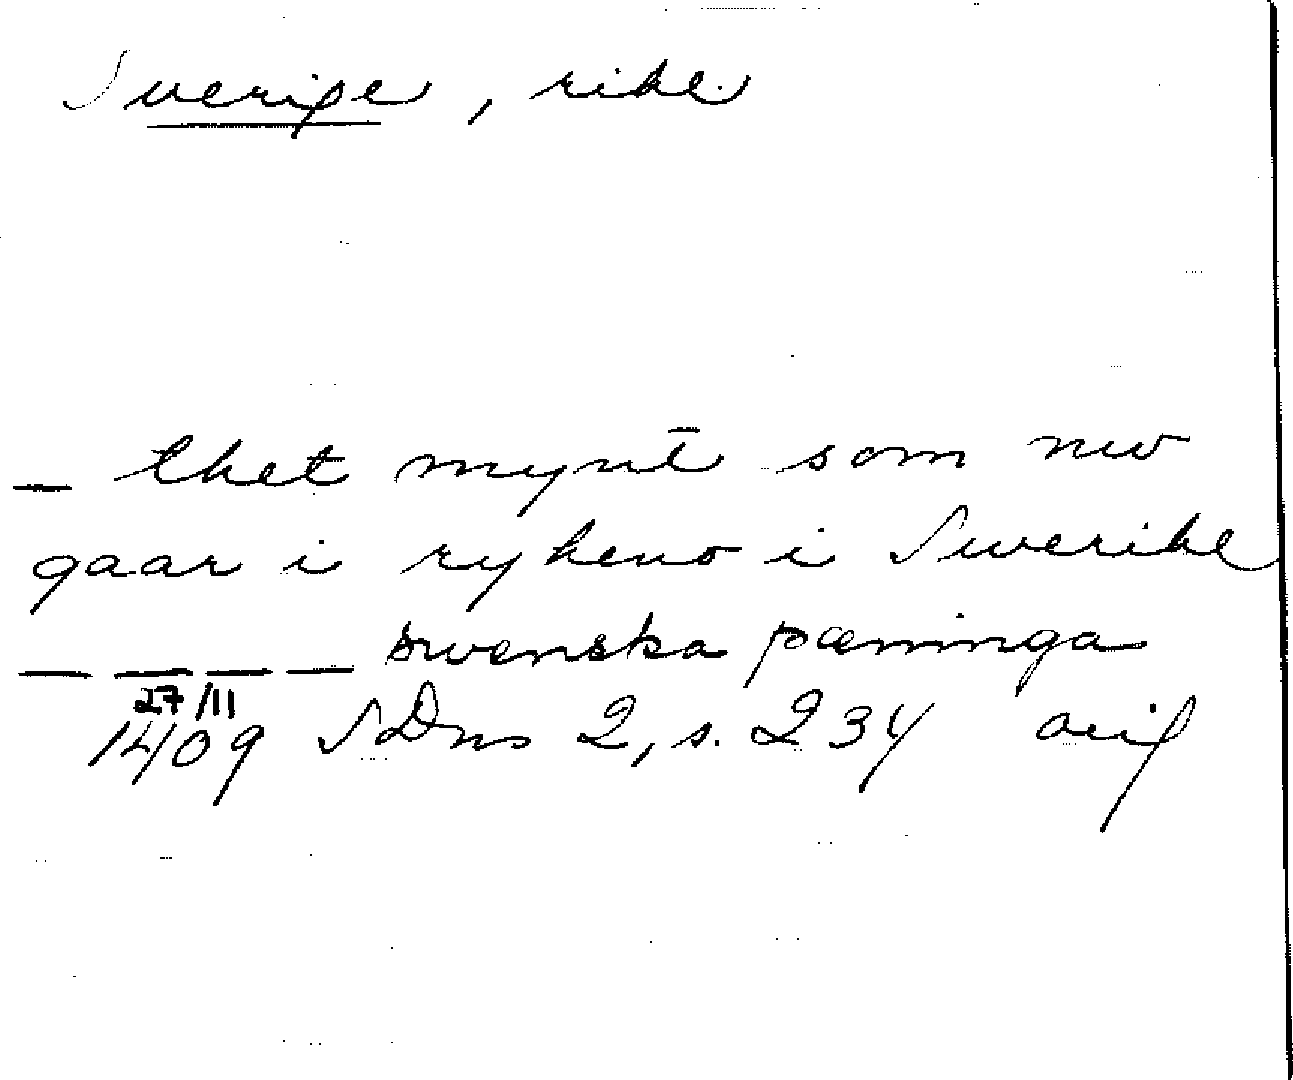 Sverige, rike
– thet mynt som nw
gaar i rykeno i Swerike
– – – – swenska pæninga
27/11
1409 SDns 2, s. 234 orig